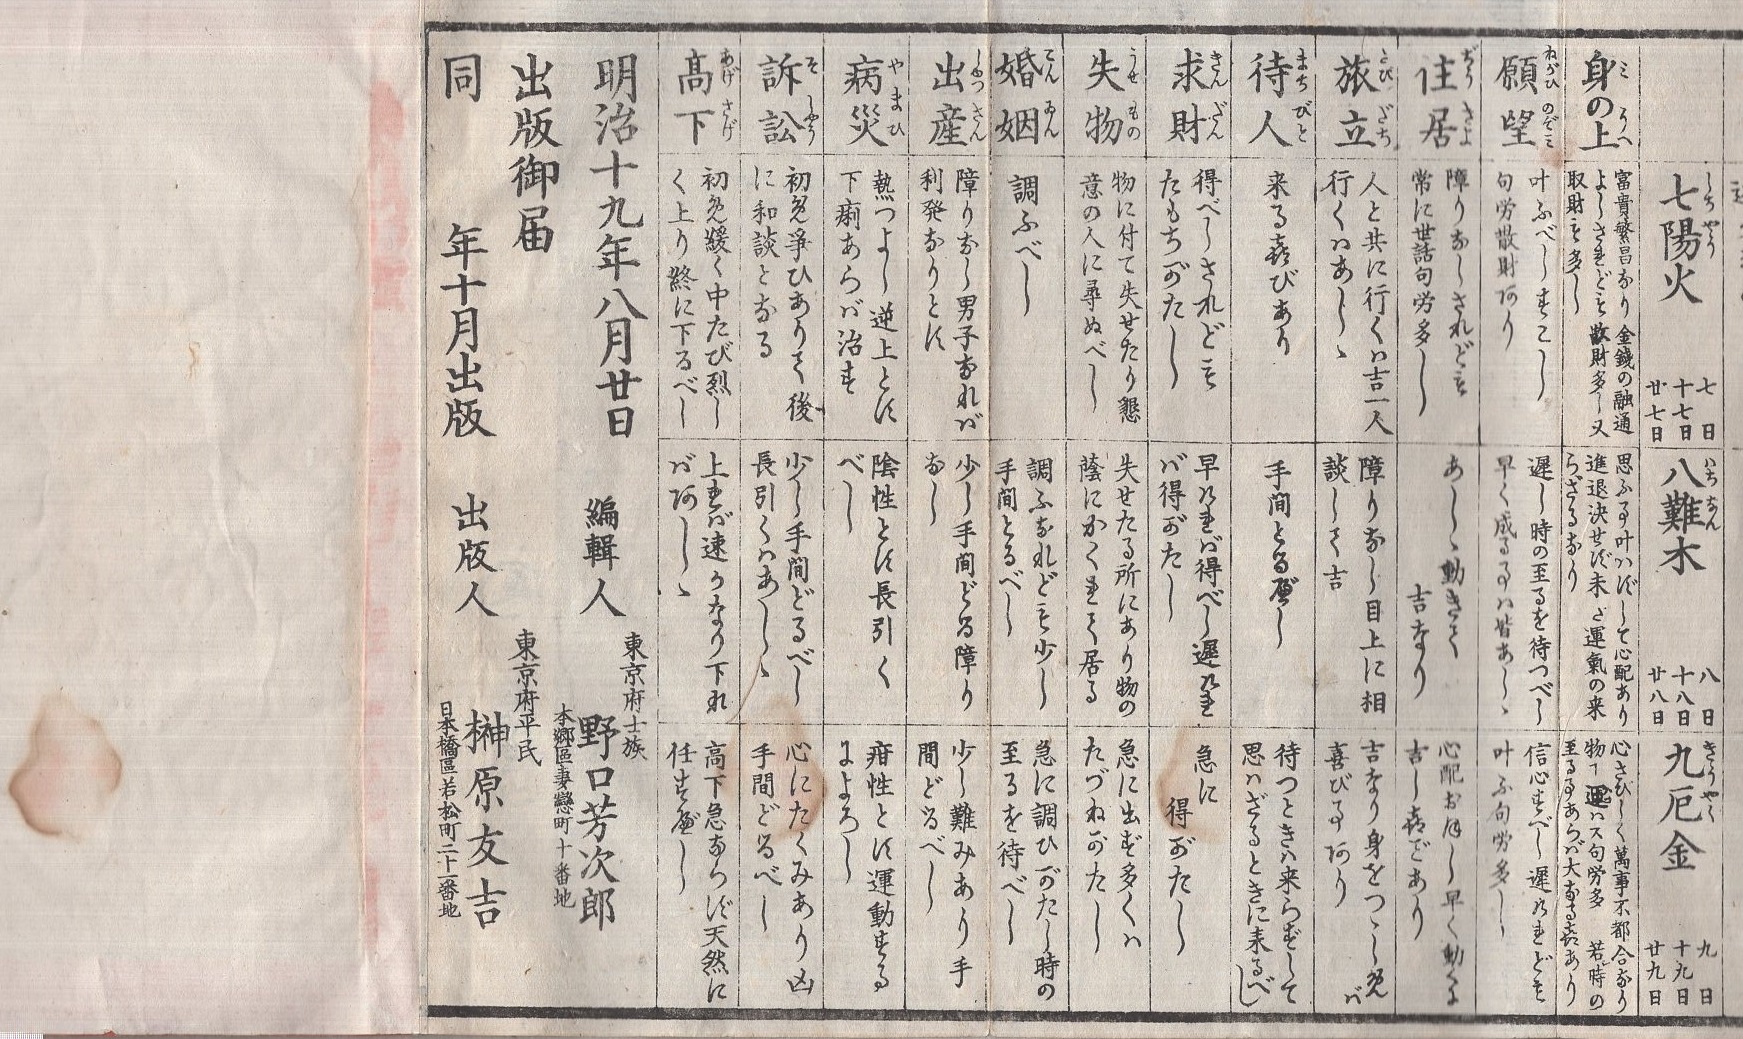 七陽火
七日
十七日
廿七日
八難木
八日
十八日
廿八日
九厄金
九日
十九日
廿九日
身の上
富貴繁昌なり金銭の融通
よしされども散財多し又
取財も多し
思ふ事叶はずして心配あり
進退決せず未だ運氣の来
らざるなり
心さびしく萬事不都合なり
至る事あらば大なる喜あり
願望
叶ふべしすこし
句労散財あり
遅し時の至るを待つべし
早く成る事は皆あしゝ
信心すべし遅けれども
叶ふ句労多し
住居
障りなしされども
常に世話句労多し
あしゝ動きて
吉なり
心配おほし早く動くよ
吉し喜びあり
旅立
人と共に行くは吉一人
行くはあしゝ
障りなし目上に相
談して吉
吉なり身をつゝしめば
喜び事あり
待人
来る喜びあり
手間とるべし
待つときは来らずして
思はざるときに来るべし
求財
得べしされども
たもちがたし
早ければ得べし遅けれ
ば得がたし
急に
得がたし
失物
物に付て失せたり懇
意の人に尋ぬべし
失せたる所にあり物の
蔭にかくれて居る
急に出ず多くは
たづねがたし
婚姻
調ふべし
調ふなれども少し
手間とるべし
急に調ひがたし時の
至るを待べし
出産
障りなし男子なれば
利発なりとす
少し手間どる障り
なし
少し難みあり手
間どるべし
病災
熱つよし逆上とす
下痢あらば治す
陰性とす長引く
べし
疳性とす運動する
によろし
訴訟
初め爭ひありて後
に和談となる
少し手間どるべし
長引くはあしゝ
心にたくみあり凶
手間どるべし
高下
初め緩く中たび烈し
く上り終に下るべし
上れば速かなり下れ
ばあしゝ
高下急ならず天然に
任すべし
明治十九年八月廿日
出版御届
同年十月出版
編輯人
東京府士族
野口芳次郎
本郷區妻戀町十番地
出版人
東京府平民
榊原友吉
日本橋區若松町二十一番地